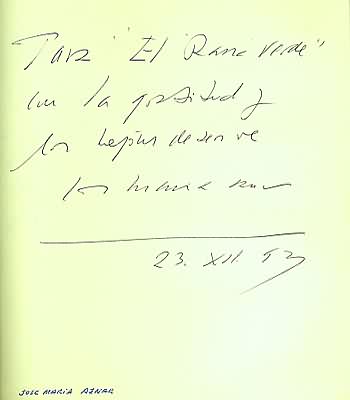 Para "El Rana Verde"
con la gratitud y
los mejores deseos de
José María Aznar
23. XII. 92
JOSE MARÍA AZNAR